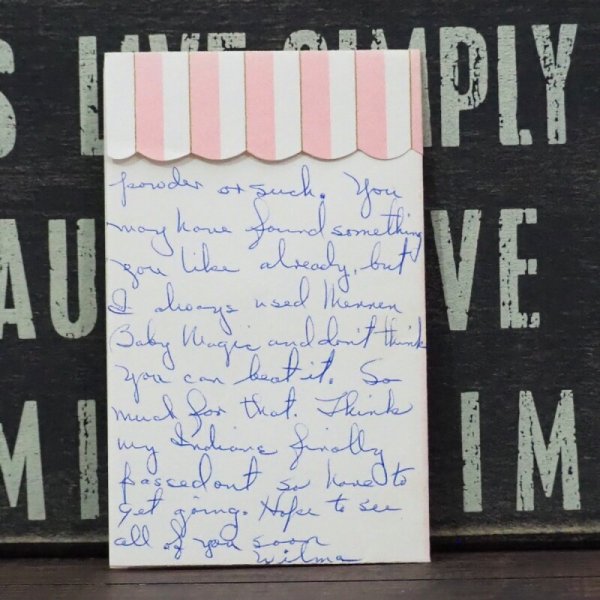 S LIVE SIMPLY
powder or such. You
may have found something
you like already, but
I always used Mennen
Baby Magic and don't think
you can beat it. So
much for that. Think
my Indians finally
passed out so have to
get going. Hope to see
all of you soon
Wilma
AU
VE
MI
IM